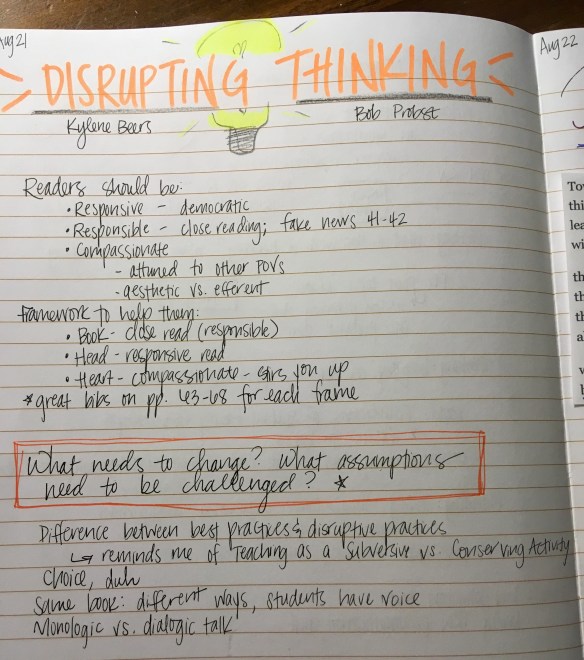 Aug 21
DISRUPTING THINKING
Kylene Beers
Bob Probst
Readers should be:
• Responsive – democratic
• Responsible – close reading; fake news 41-42
• Compassionate
- attuned to other POVs
- aesthetic vs. efferent
framework to help them:
• Book - close read (responsible)
• Head - responsive read
• Heart - compassionate - stirs you up
*great bibs on pp. 63-68 for each frame
What needs to change? What assumptions
need to be challenged? *
Difference between best practices & disruptive practices
↳ reminds me of Teaching as a Subversive vs. Conserving Activity
Choice, duh
Same book: different ways, students have voice
Monologic vs. dialogic talk
Aug 22
thi
lea
wi
th
th
th